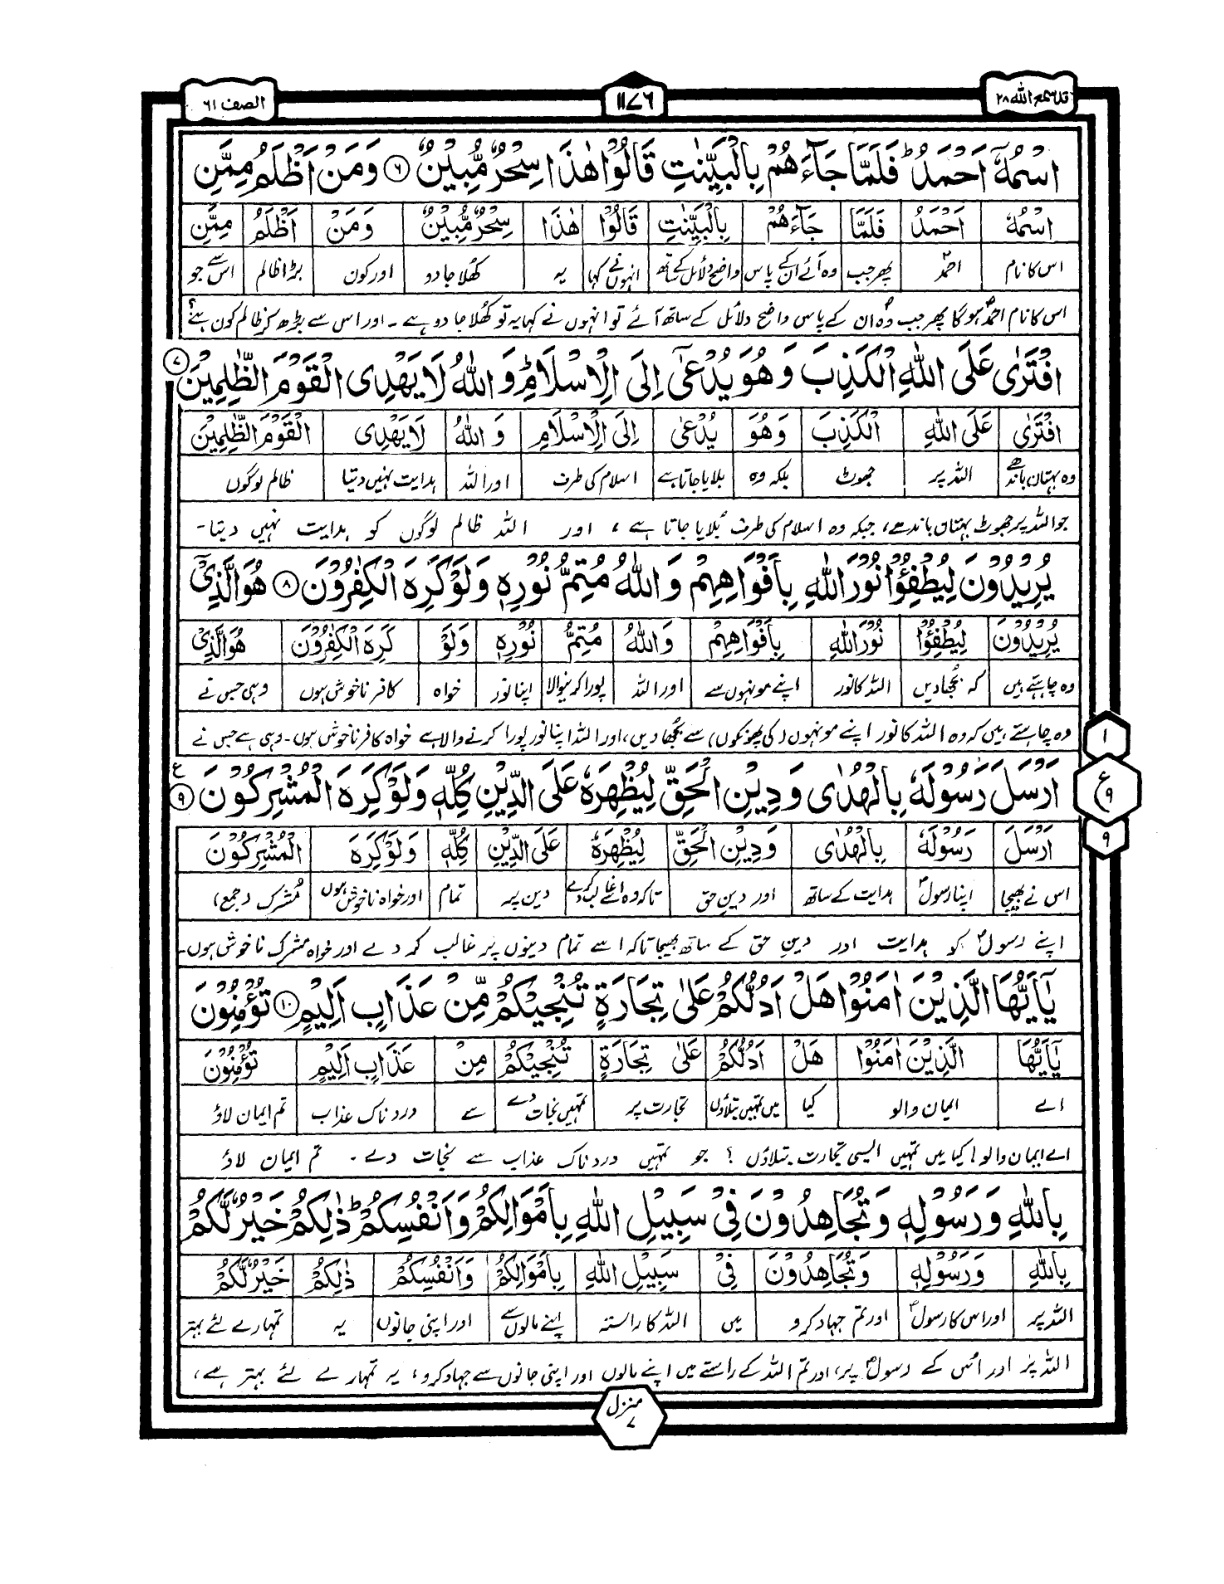 قد سمع الله ٢٨
١١٧٦
الصف ٦١
اسْمُهٗۤ اَحْمَدُ ؕ فَلَمَّا جَآءَهُمْ بِالْبَيِّنٰتِ قَالُوْا هٰذَا سِحْرٌ مُّبِيْنٌ ۶ وَمَنْ اَظْلَمُ مِمَّنِ
اسْمُهٗ اَحْمَدُ فَلَمَّا جَآءَهُمْ بِالْبَيِّنٰتِ قَالُوْا هٰذَا سِحْرٌ مُّبِيْنٌ وَمَنْ اَظْلَمُ مِمَّنِ
اس کا نام احمدؐ پھر جب وہ آئے ان کے پاس واضح دلائل کے ساتھ انہوں نے کہا یہ کھلا جادو اور کون بڑا ظالم اس سے جو
اس کا نام احمدؐ ہوگا پھر جب وہؐ ان کے پاس واضح دلائل کے ساتھ آئے تو انہوں نے کہا یہ تو کھلا جادو ہے ۔ اور اس سے بڑھ کر ظالم کون ہے؟
افْتَرٰى عَلَى اللّٰهِ الْكَذِبَ وَهُوَ يُدْعٰۤى اِلَى الْاِسْلَامِ ؕ وَاللّٰهُ لَا يَهْدِى الْقَوْمَ الظّٰلِمِيْنَ ۷
افْتَرٰى عَلَى اللّٰهِ الْكَذِبَ وَهُوَ يُدْعٰى اِلَى الْاِسْلَامِ وَاللّٰهُ لَا يَهْدِى الْقَوْمَ الظّٰلِمِيْنَ
وہ بہتان باندھے اللہ پر جھوٹ بلکہ وہ بلایا جاتا ہے اسلام کی طرف اور اللہ ہدایت نہیں دیتا ظالم لوگوں
جو اللہ پر جھوٹ بہتان باندھے، جبکہ وہ اسلام کی طرف بُلایا جاتا ہے، اور اللہ ظالم لوگوں کو ہدایت نہیں دیتا۔
يُرِيْدُوْنَ لِيُطْفِـُٔوْا نُوْرَ اللّٰهِ بِاَفْوَاهِهِمْ وَاللّٰهُ مُتِمُّ نُوْرِهٖ وَلَوْ كَرِهَ الْكٰفِرُوْنَ ۸ هُوَ الَّذِىْۤ
يُرِيْدُوْنَ لِيُطْفِـُٔوْا نُوْرَ اللّٰهِ بِاَفْوَاهِهِمْ وَاللّٰهُ مُتِمُّ نُوْرِهٖ وَلَوْ كَرِهَ الْكٰفِرُوْنَ هُوَ الَّذِىْ
وہ چاہتے ہیں کہ بجھا دیں اللہ کا نور اپنے مونہوں سے اور اللہ پورا کرنیوالا اپنا نور خواہ کافر ناخوش ہوں وہی جس نے
وہ چاہتے ہیں کہ وہ اللہ کا نور اپنے مونہوں (کی پھونکوں) سے بجھا دیں، اور اللہ اپنا نور پورا کرنے والا ہے خواہ کافر ناخوش ہوں۔ وہی ہے جس نے
اَرْسَلَ رَسُوْلَهٗ بِالْهُدٰى وَدِيْنِ الْحَقِّ لِيُظْهِرَهٗ عَلَى الدِّيْنِ كُلِّهٖ وَلَوْ كَرِهَ الْمُشْرِكُوْنَ ۹ ع
۱
ع ۹
۹
اَرْسَلَ رَسُوْلَهٗ بِالْهُدٰى وَدِيْنِ الْحَقِّ لِيُظْهِرَهٗ عَلَى الدِّيْنِ كُلِّهٖ وَلَوْ كَرِهَ الْمُشْرِكُوْنَ
اس نے بھیجا اپنا رسولؐ ہدایت کے ساتھ اور دین حق تاکہ وہ اسے غالب کردے دین پر تمام اور خواہ ناخوش ہوں مشرک (جمع)
اپنے رسولؐ کو ہدایت اور دین حق کے ساتھ بھیجا تاکہ اسے تمام دینوں پر غالب کر دے اور خواہ مشرک ناخوش ہوں۔
يٰۤاَيُّهَا الَّذِيْنَ اٰمَنُوْا هَلْ اَدُلُّكُمْ عَلٰى تِجَارَةٍ تُنْجِيْكُمْ مِّنْ عَذَابٍ اَلِيْمٍ ۱۰ تُؤْمِنُوْنَ
يٰۤاَيُّهَا الَّذِيْنَ اٰمَنُوْا هَلْ اَدُلُّكُمْ عَلٰى تِجَارَةٍ تُنْجِيْكُمْ مِنْ عَذَابٍ اَلِيْمٍ تُؤْمِنُوْنَ
اے ایمان والو کیا میں تمہیں بتلاؤں تجارت پر تمہیں نجات دے سے دردناک عذاب تم ایمان لاؤ
اے ایمان والو! کیا میں تمہیں ایسی تجارت بتلاؤں؟ جو تمہیں دردناک عذاب سے نجات دے۔ تم ایمان لاؤ
بِاللّٰهِ وَرَسُوْلِهٖ وَتُجَاهِدُوْنَ فِىْ سَبِيْلِ اللّٰهِ بِاَمْوَالِكُمْ وَاَنْفُسِكُمْ ؕ ذٰلِكُمْ خَيْرٌ لَّكُمْ
بِاللّٰهِ وَرَسُوْلِهٖ وَتُجَاهِدُوْنَ فِىْ سَبِيْلِ اللّٰهِ بِاَمْوَالِكُمْ وَاَنْفُسِكُمْ ذٰلِكُمْ خَيْرٌ لَّكُمْ
اللہ پر اور اس کا رسولؐ اور تم جہاد کرو میں اللہ کا راستہ اپنے مالوں سے اور اپنی جانوں یہ تمہارے لئے بہتر
اللہ پر اور اُس کے رسولؐ پر، اور تم اللہ کے راستے میں اپنے مالوں اور اپنی جانوں سے جہاد کرو، یہ تمہارے لئے بہتر ہے،
منزل ۷